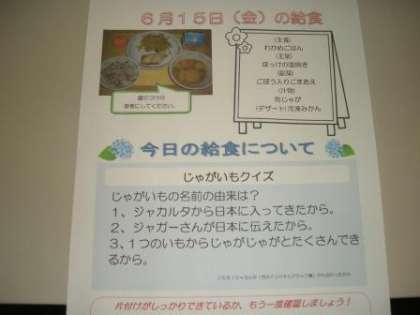 ６月１５日（金）の給食
(主食)
わかめごはん
(主菜)
ほっけの塩焼き
(副菜)
ごぼう入りごまあえ
(汁物)
肉じゃが
(デザート)冷凍みかん
参考にしてください。
今日の給食について
じゃがいもクイズ
じゃがいもの名前の由来は？
１、ジャカルタから日本に入ってきたから。
２、ジャガーさんが日本に伝えたから。
３、１つのいもからじゃがじゃがとたくさんでき
るから。
片付けがしっかりできているか、もう一度確認しましょう！